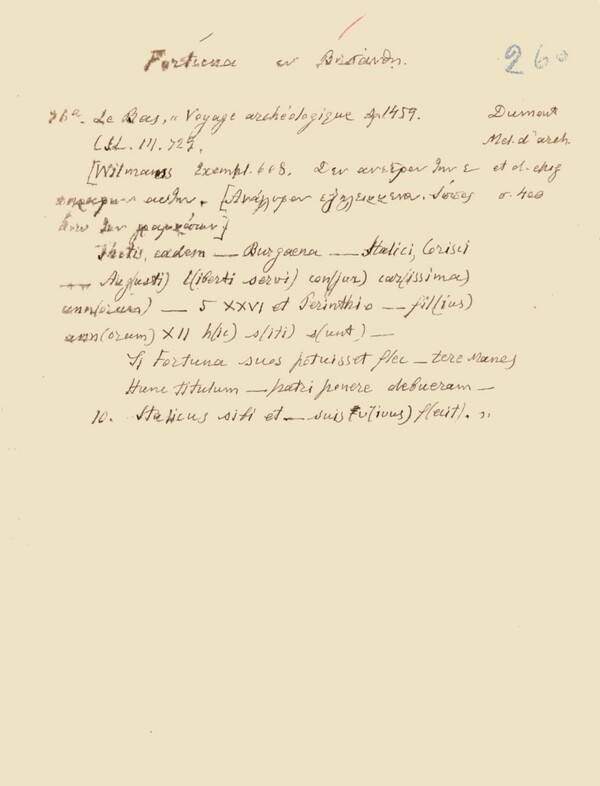 Fortuna εν Βισάνθη. 260
76α. Le Bas, „ Voyage archéologique Ap 1459. Dumont
C.I.L. III. 729. Mel. d'arch.
[Wilmanns Exempl. 608. Δεν ανεύρον την ε et d. epig
αυτην. [Ανάγλυφον εξηλειμμένον. Ίππος σ. 400
άνω των γραμμάτων]
Thetis, eadem — Burgaena — Italici, Corisci
Aug(usti) l(iberti servi) con(jux) car(issima)
ann(orum) — 5 XXVI et Perinthio — fil(ius)
ann(orum) XII h(ic) s(iti) s(unt) —
Si Fortuna suos potuisset flec — tere Manes
Hunc titulum — patri ponere debueram —
10. Italicus sibi et — suis (v(ivus) f(ecit). „